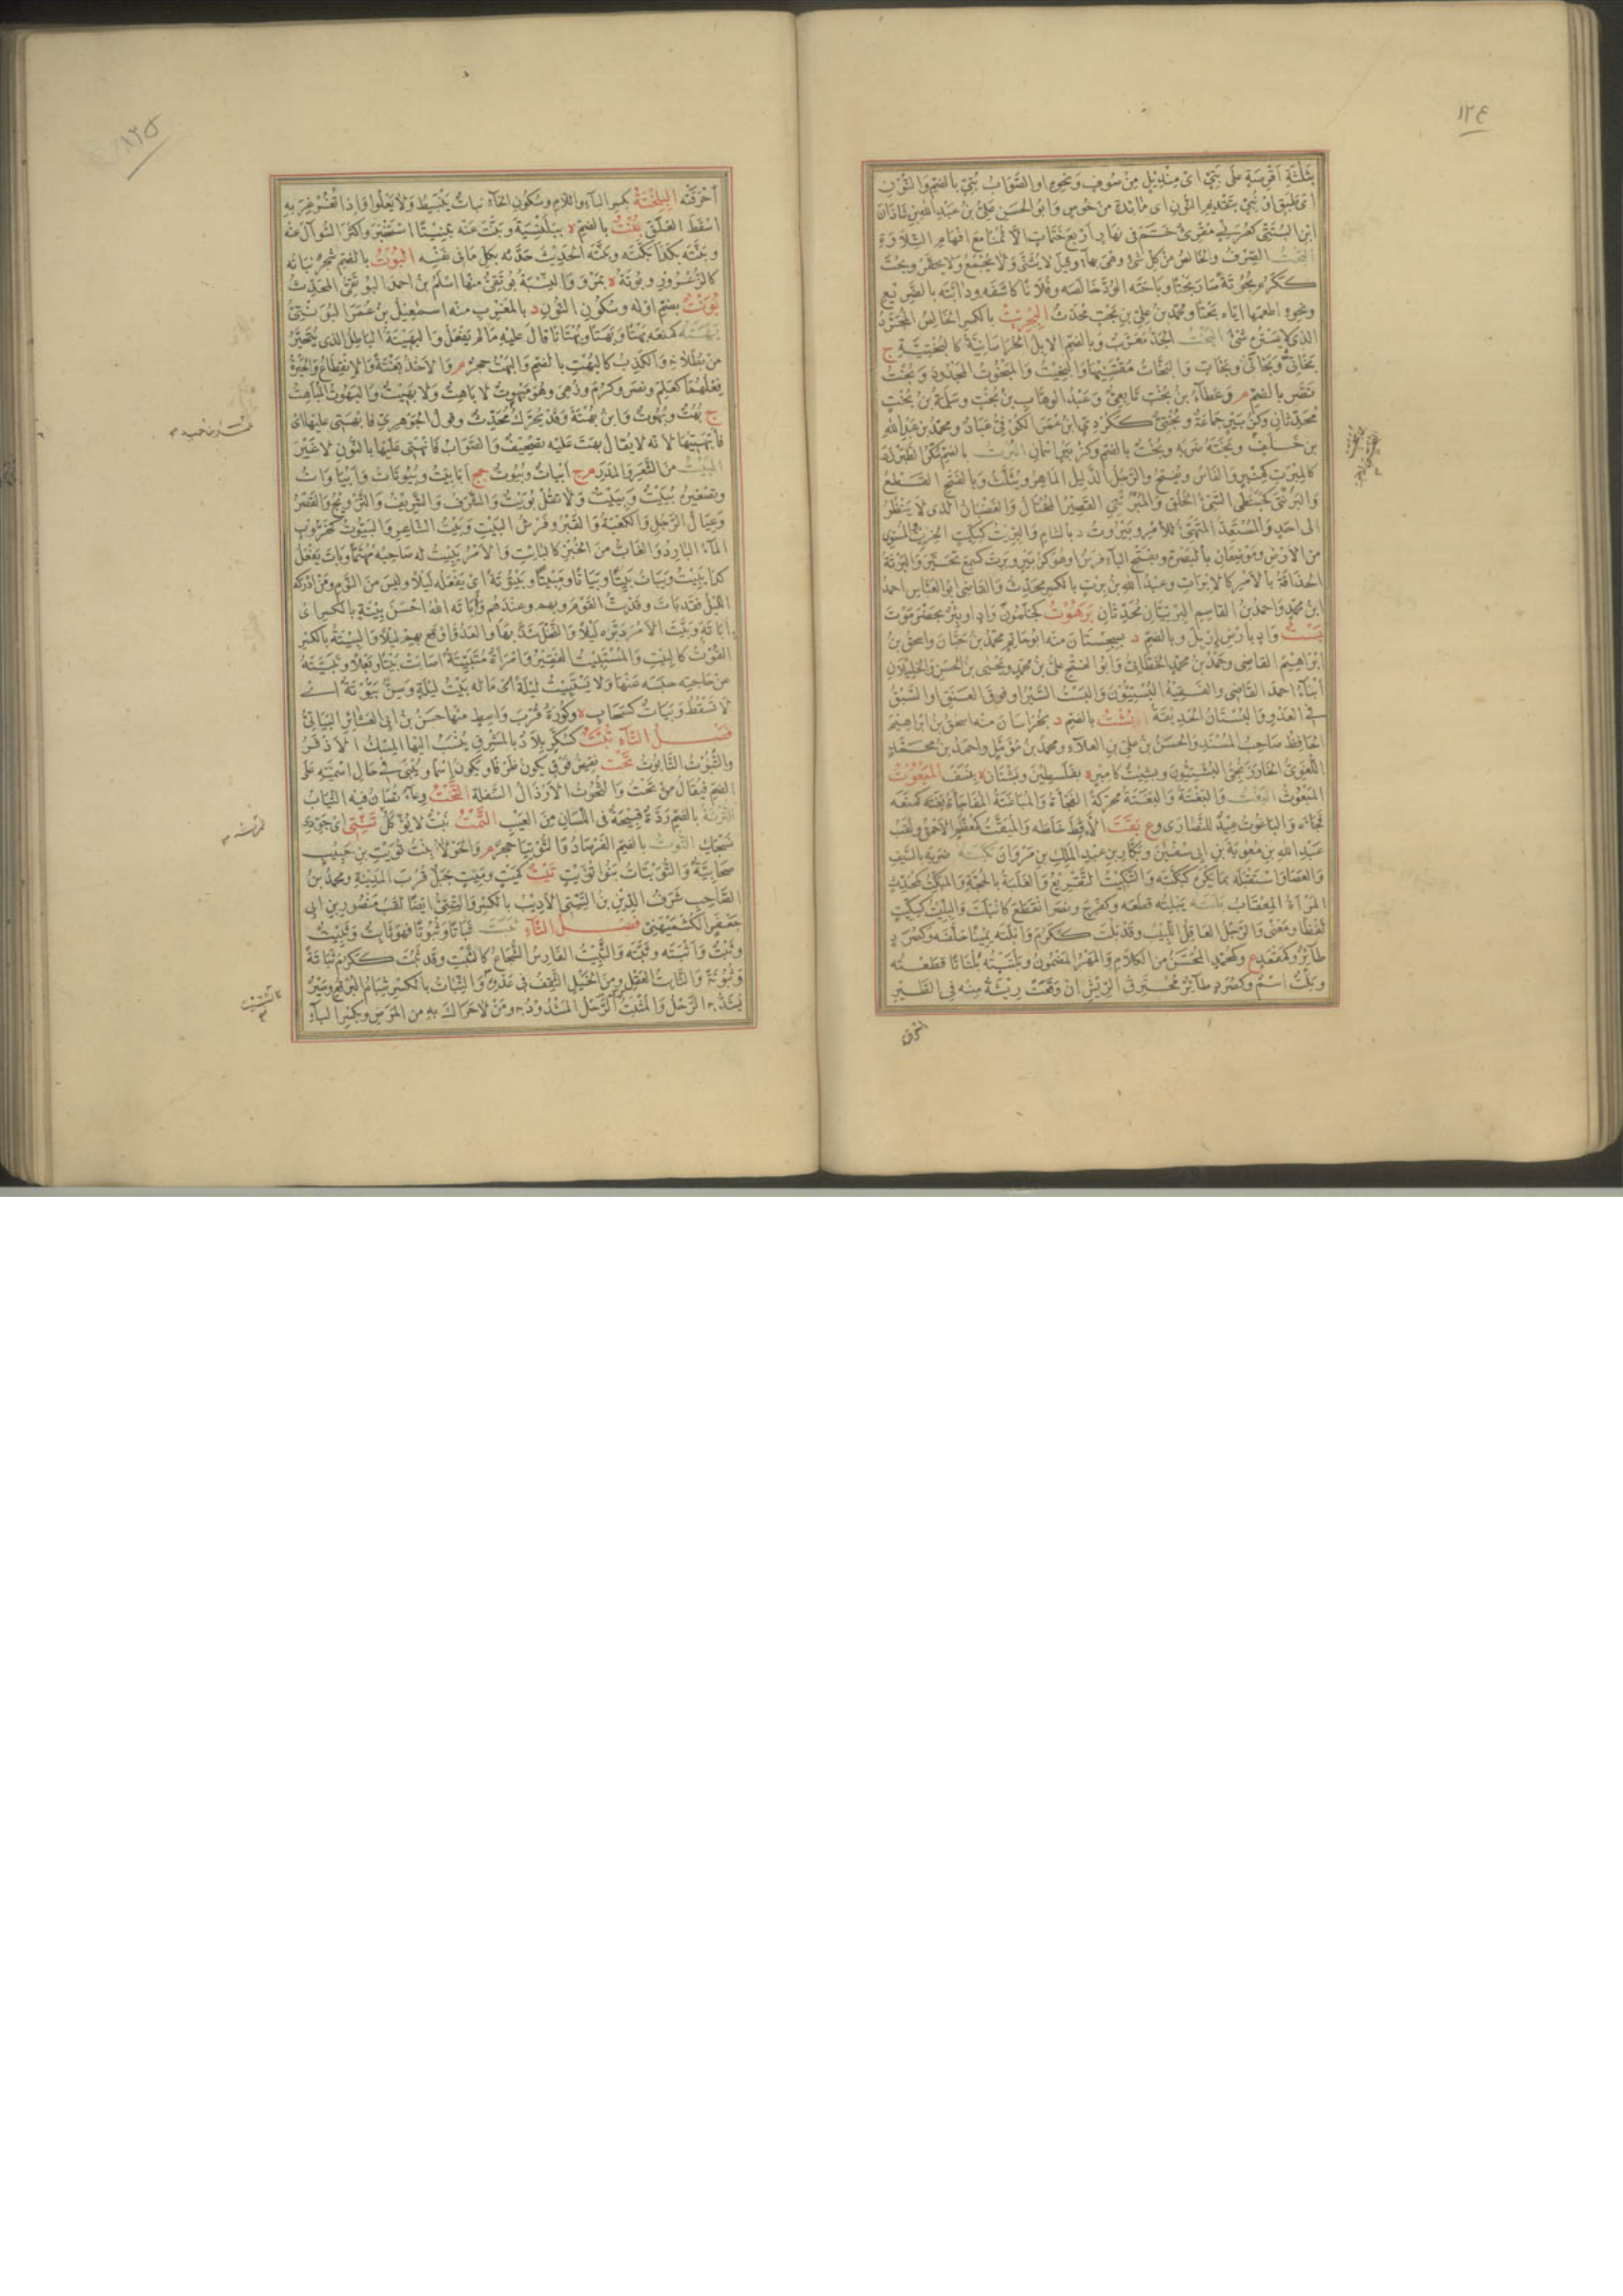 ١٢٤
بثلثة اقرصة على بتي اى منديل من صوف ونحوه او الصواب بني بالضم والنون
اى طبق او نبي بتقديم النون اى مائدة من خوص وابو الحسن على بن عبد الله بن شاذان
ابن البتتى كعرنى مقرئ ختم فى نهار اربع ختمات الا ثمنا مع افهام التلاوة
البحت الصرف والخالص من كل شئ وهى بهاء وقيل لا يثنى ولا يجمع ولا يحقر وبحت
ككرم بحوتة صار بحتا وباحته الود خالصه وفلانا كاشفه ودابته بالضريع
ونحوه اطعمها اياه بحتا ومحمد بن على بن بحت محدث البحريت بالكسر الخالص المجرد
الذى لا يستره شئ البخت الجد معرب وبالضم الابل الخراسانية كالبختية ج
بخاتى وبخاتى وبخات والبخات مقتنيها والبخيت والمبخوت المجدود وبخت
نصر بالضم م وعطاء بن بخت تابعى وعبد الوهاب بن بخت وسلمة بن بخت
محدثان وكزبير جماعة وبختى ككردى ابن عمر الكوفى عباد ومحمد بن عبد الله
بن خلف وبخته ضربه وبخت بالضم وكزبير اسمان البرت بالضم السكر الطبرزذ
كالمبرت كمنبر والفاس ويفتح والرجل الدليل الماهر ويثلث وبالفتح القطع
والبرنتى كحبنطى السيئ الخلق والمبرنتى القصير المختال والغضبان الذى لا ينظر
الى احد والمستعد المتهيئ للامر وبيروت د بالشام والبريت كسكيت الخريت المستوى
من الارض وموضعان بالبصرة وبفتح الباء فرس او هو كزبير وبرت كسمع تحير والبرتة
الحذاقة بالامر كالابرات وعبد الله بن برت بالكسر محدث والقاضى ابو العباس احمد
ابن محمد واحمد بن القاسم البرتيان محدثان برهوت كحلمون واد او بئر بحضرموت
بست واد بارض اربل وبالضم د بسجستان منه ابو حاتم محمد بن حبان واسحق بن
ابراهيم القاضى وحمد بن محمد الخطابى وابو الفتح على بن محمد ويحيى بن الحسن والخليلان
ابناء احمد القاضى والفقيه البستيون والبست السير او فوق العنق او السبق
فى العدو والبستان الحديقة بشت بالضم د بخراسان منه اسحق بن ابراهيم
الحافظ صاحب المسند والحسن بن على بن العلاء ومحمد بن مؤمل واحمد بن محمد
اللغوى الخارزنجى البشتيون وبشيت كامير ة بفلسطين وبشتان ة بنسف المبعوت
المبعوث البغت والبغتة والبغتة محركة الفجأة والمباغتة المفاجأة بغته كمنعه
فجأه والباغوت عيد للنصارى وع بقت الاقط خلطه والمبقت كمعظم الاحمق ولقب
عبد الله بن معوية بن ابى سفين وبكار بن عبد الملك بن مروان بكته ضربه بالسيف
والعصا واستقبله بما يكره كبكته والتبكيت التقريع والغلبة بالحجة والمبكت كمحدث
المرأة المعقاب بلته يبلته قطعه وكفرح ونصر انقطع كانبلت والبليت كسكيت
لفظا ومعنى والرجل العاقل اللبيب وقد بلت ككرم وابلته يمينا حلفه وكصرد
طائر وكمقعد ع وكمعبد المحسن من الكلام والمهر المضمون وبلتيته بلتاتا قطعته
وبلت اسم وكصرد طائر محترق الريش ان وقعت ريشة منه فى الطير
احرقته
١٢٥
احرقته البلختة بكسر الباء واللام وسكون الخاء نبات ينبسط ولا يعلوا واذا تغرغر به
اسقط العلق بنت بالضم ة ببلنسية وبنت عنه تبنيتا استخبر واكثر السوال عنه
وبنته بكذا بكته وبنته الحديث حدثه بكل ما فى نفسه البوت بالضم شجر نباته
كالزعرور وبوتة ة بمرو والنسبة بوتقى منها اسلم بن احمد البوتقى المحدث
بونت بضم اوله وسكون النون د بالمغرب منه اسمعيل بن عمر البونتى
بهته كمنعه بهتا وبهتا وبهتانا قال عليه ما لم يفعل والبهيتة الباطل الذى يتحير
من بطلانه والكذب كالبهت بالضم والبهت حجر م والاخذ بغتة والانقطاع والحيرة
فعلهما كعلم ونصر وكرم وزهى وهو مبهوت لا باهت ولا بهيت والبهوت المباهت
ج بهت وبهوت وابن بهتة وقد يحرك محدث وقول الجوهرى فابهتى عليها اى
فابهتيها لانه لا يقال بهت عليه تصحيف والصواب فانهتى عليها بالنون لا غير
البيت من الشعر والمدر م ج ابيات وبيوت جج اباييت وبيوتات وابياوات
وتصغيره بييت وبييت ولا تقل بويت والشرف والشريف والتزويج والقصر
وعيال الرجل والكعبة والقبر وفرش البيت وبيت الشاعر والبيوت كخروب
الماء البارد والغاب من الخبز كالبائت والامر يبيت له صاحبه مهتما وبات يفعل
كذا يبيت ويبات بيتا وبياتا ومبيتا وبيتوتة اى يفعله ليلا وليس من النوم ومن ادركه
الليل فقد بات وقد بت القوم وبهم وعندهم واباته الله احسن بيتة بالكسر اى
اباتة وبيت الامر دبره ليلا والنخل شذبها والعدو اوقع بهم ليلا والبيتة بالكسر
القوت كالبيت والمستبيت الفقير وامرأة متبيتة اصابت بيتا وبعلا وتبيته
عن حاجته حبسه عنها ولا يستبيت ليلة اى ما له بيت ليلة وسن بيوتة اى
لا تسقط وبيات كسحاب ة وكورة قرب واسط منها حسن بن ابى العشائر البياتى
فصل التاء تبت كسكر بلاد بالمشرق ينسب اليها المسك الاذفر
والتبوت التابوت تحت نقيض فوق يكون ظرفا ويكون اسما ويبنى فى حال اسميته على
الضم فيقال من تحت والتحوت الارذال السفلة التخت وعاء تصان فيه الثياب
الترتة بالضم ردة قبيحة فى اللسان من العيب التمت نبت لا يؤكل تنتى اى جودى
نسجك التوت بالضم الفرصاد والتوتيا حجر م والحولاء بنت تويت بن حبيب
صحابية والتويتات بنوا تويت تيت كميت وميت جبل قرب المدينة ومحمد بن
الصاحب شرف الدين بن التيتى الاديب بالكسر والتيتى ايضا لقب منصور بن ابى
جعفر الكشميهنى فصل الثاء ثبت ثباتا وثبوتا فهو ثابت وثبيت
وثبت واثبته وثبته والثبيت الفارس الشجاع كالثبت وقد ثبت ككرم ثباتة
وثبوتة والثابت العقل ومن الخيل الثقف فى عدوه والثبات بالكسر شبام البرقع وسير
يشد به الرحل والمثبت الرحل المشدود به ومن لا حراك به من المرض وبكسر الباء